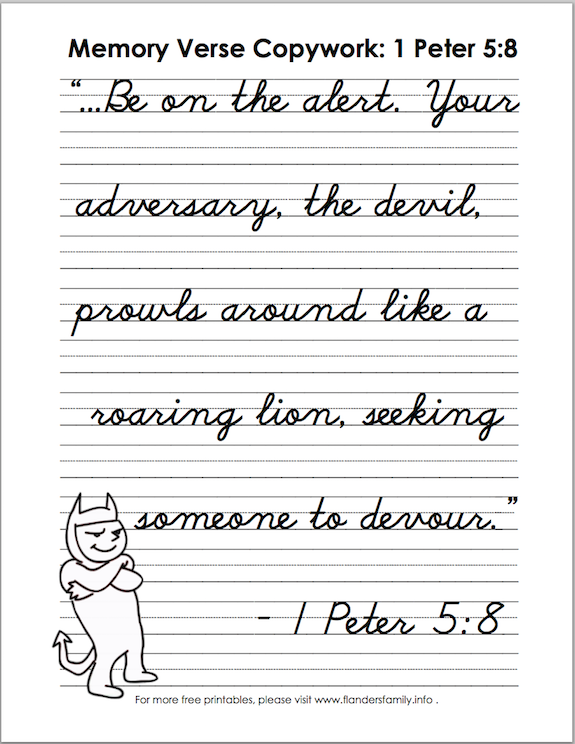 Memory Verse Copywork: 1 Peter 5:8
“...Be on the alert. Your
adversary, the devil,
prowls around like a
roaring lion, seeking
someone to devour.”
- 1 Peter 5:8
For more free printables, please visit www.flandersfamily.info .